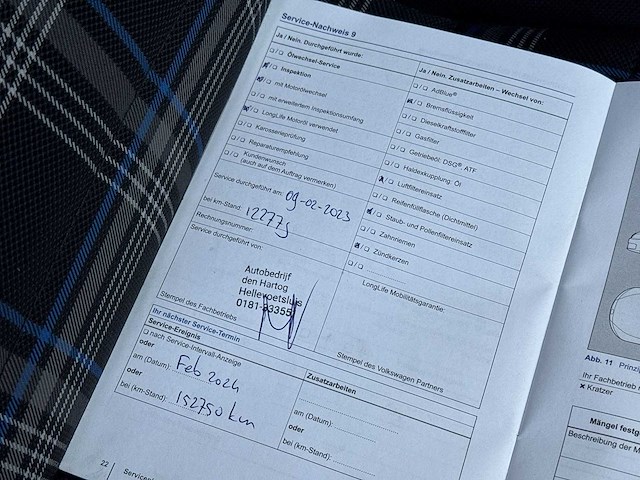 Service-Nachweis 9
Ja / Nein. Durchgeführt wurde:
Ölwechsel-Service
Inspektion
mit Motorölwechsel
mit erweitertem Inspektionsumfang
LongLife Motoröl verwendet
Karosserieprüfung
Reparaturempfehlung
Kundenwunsch
(auch auf dem Auftrag vermerken)
Service durchgeführt am: 09-02-2023
bei km-Stand:
Rechnungsnummer:
Service durchgeführt von:
Autobedrijf
den Hartog
Hellevoetsluis
Stempel des Fachbetriebs
Ja / Nein. Zusatzarbeiten – Wechsel von:
AdBlue®
Bremsflüssigkeit
Dieselkraftstofffilter
Gasfilter
Getriebeöl: DSG® ATF
Haldexkupplung: Öl
Luftfiltereinsatz
Reifenfüllflasche (Dichtmittel)
Staub- und Pollenfiltereinsatz
Zahnriemen
Zündkerzen
LongLife Mobilitätsgarantie:
Stempel des Volkswagen Partners
Ihr nächster Service-Termin
Service-Ereignis
nach Service-Intervall-Anzeige
oder
am (Datum): Feb 2024
oder
bei (km-Stand): 152750 km
Zusatzarbeiten
am (Datum):
oder
bei (km-Stand):
22
Abb. 11
Ihr Fachbetrieb
× Kratzer
Mängel
Beschreibung der